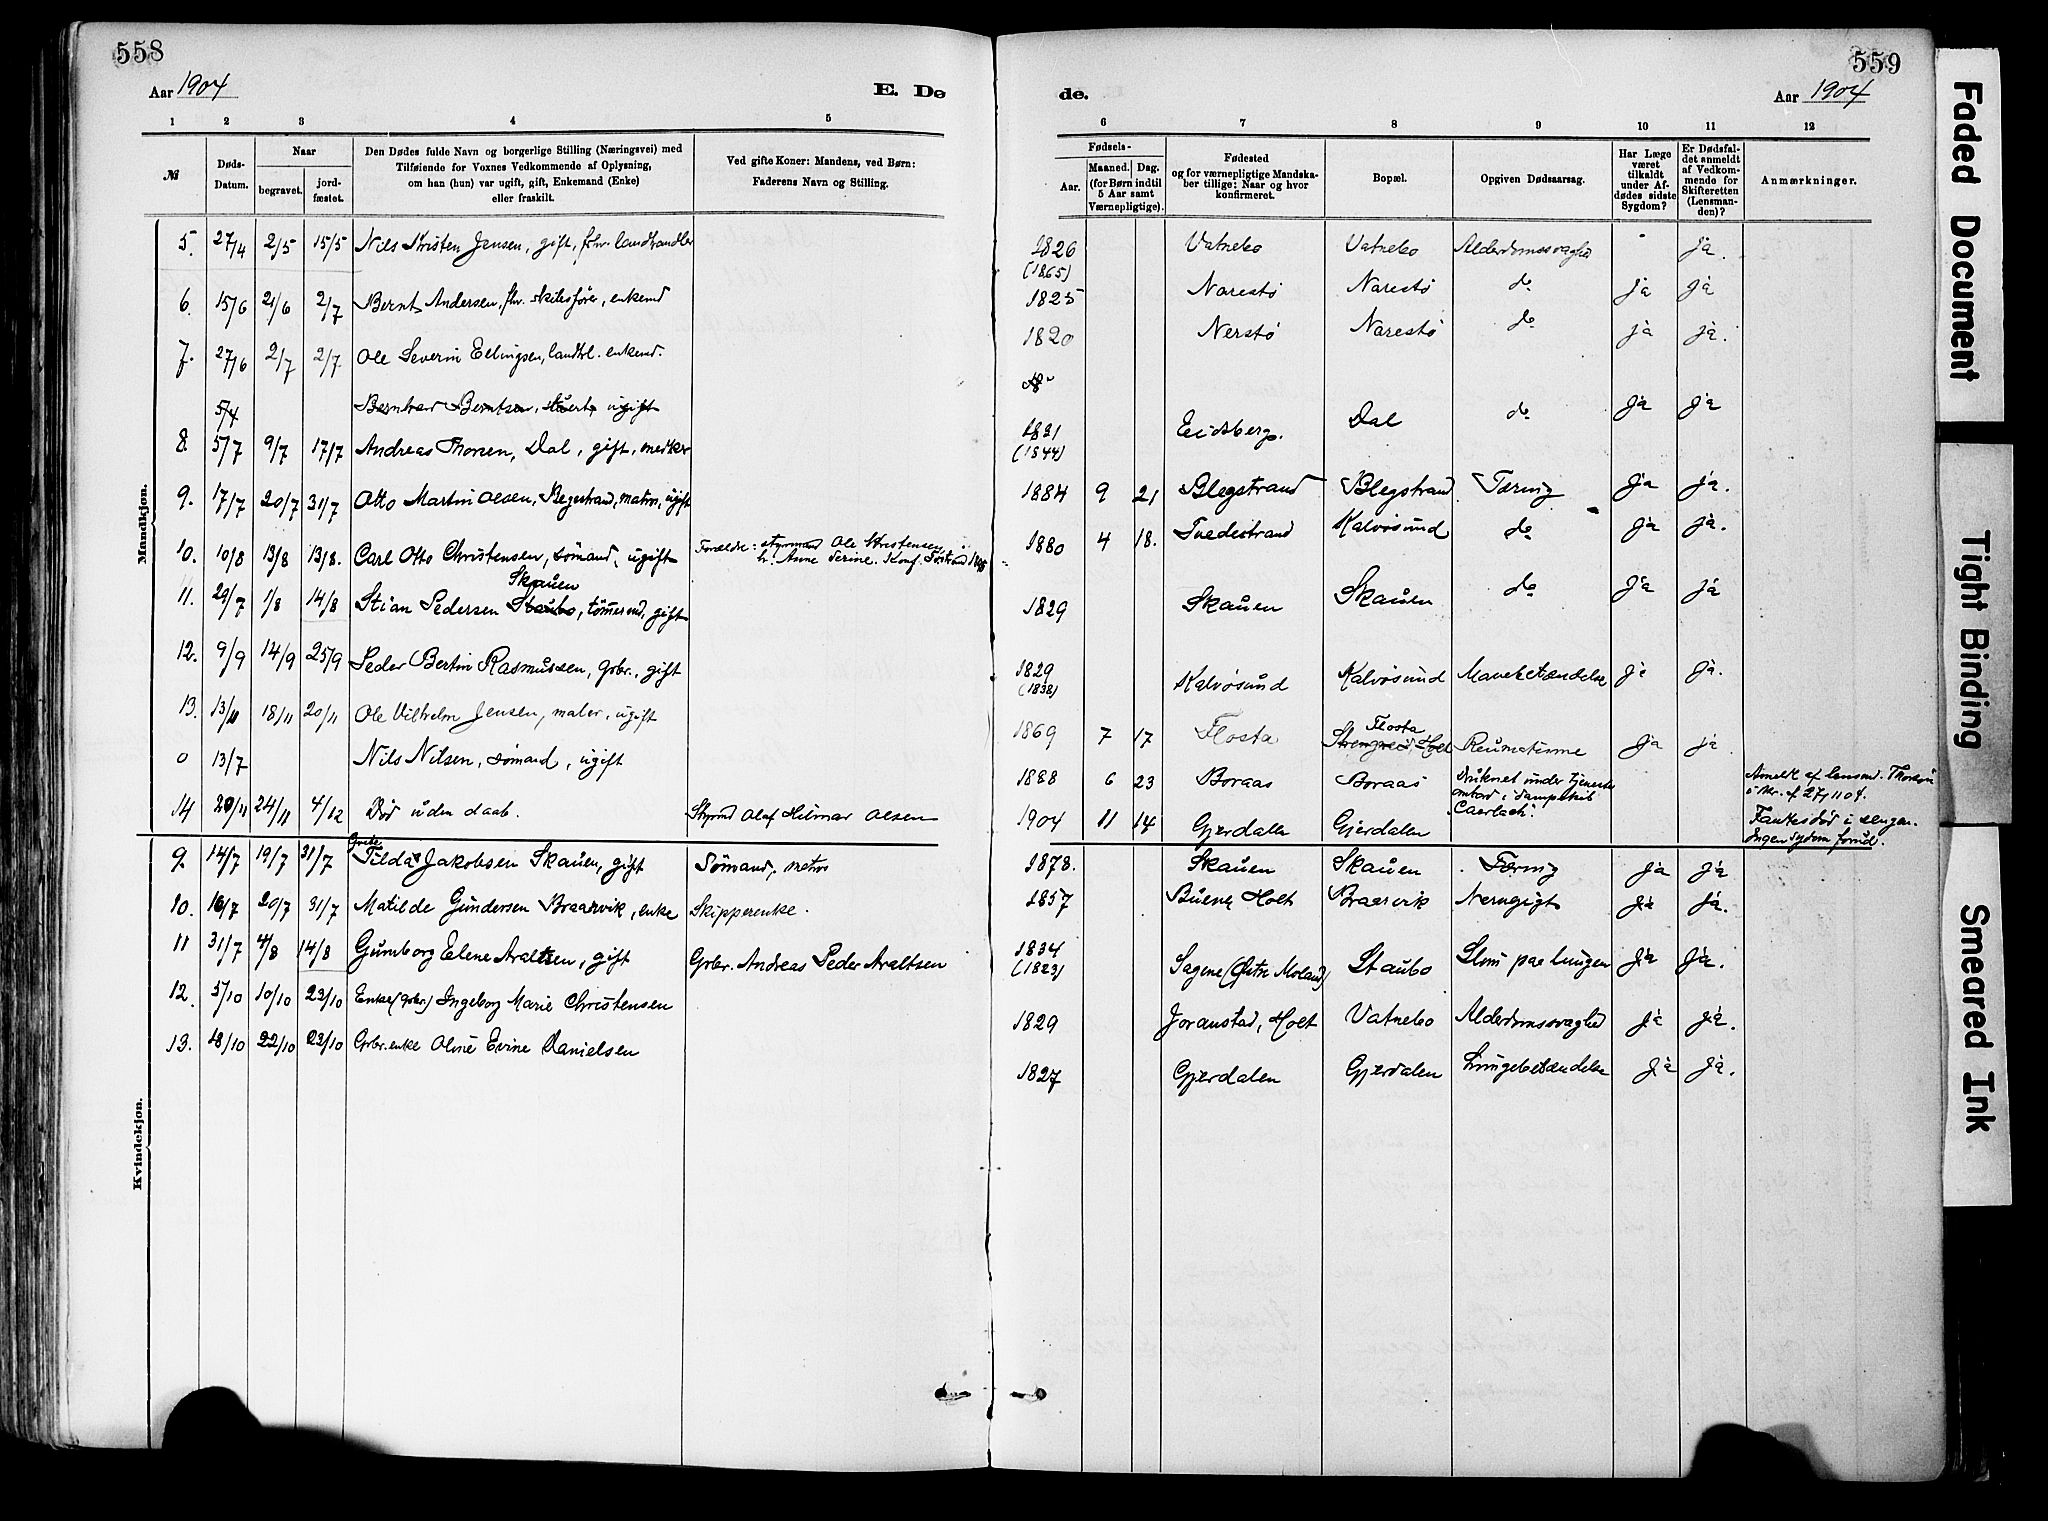 558
Aar 1904
E. Dø
1 2 3 4 5
№
Døds-Datum.
Naar
begravet. jord-fæstet.
Den Dødes fulde Navn og borgerlige Stilling (Næringsvei) med
Tilføiende for Voxnes Vedkommende af Oplysning,
om han (hun) var ugift, gift, Enkemand (Enke)
eller fraskilt.
Ved gifte Koner: Mandens, ved Børn:
Faderens Navn og Stilling.
Mandkjøn.
5. 27/4 2/5 15/5 Nils Kristen Jensen, gift, fhv. landhandler
6. 15/6 21/6 2/7 Bernt Andersen, fhv. skibsfører, enkemd
7. 27/6 2/7 2/7 Ole Severin Ellingsen, enkemd.
5/4 Bernhard Berntsen, stuert, ugift
8. 5/7 9/7 17/7 Andreas Thorsen, Dal, gift,
9. 17/7 20/7 31/7 Otto Martin Olsen, matros, ugift
10. 10/8 13/8 13/8. Carl Otto Christensen, sømand, ugift Forældre: styrmand Ole Kristensen
Skauen
11. 29/7 1/8 14/8 Stian Pedersen Staubo, tømmermd, gift
12. 9/9 14/9 25/9 Peder Bertin Rasmussen, gbr., gift
13. 13/11 18/11 20/11 Ole Vilhelm Jensen, maler, ugift
0 13/7 Nils Nilsen, sømand, ugift
14 20/11 24/11 4/12 Død uden daab. Styrmd Olaf Hilmar Olsen
Kvindekjøn.
9. 14/7 19/7 31/7 Tilda Jakobsen Skauen, gift Sømand, matros
10. 16/7 20/7 31/7 Matilde Gundersen Braarvik, enke Skipperenke.
11 31/7 4/8 14/8 Gunborg Elene Araltsen, gift Gbr. Andreas Peder Araltsen
12. 5/10 10/10 23/10 Enke (gbr.) Ingeborg Marie Christensen
13. 18/10 22/10 23/10 Gbr. enke Oline Evine Danielsen
559
de.
Aar 1904
6 7 8 9 10 11 12
Fødsels-
Aar. Maaned. Dag.
(for Børn indtil
5 Aar samt
Værnepligtige).
Fødested
og for værnepligtige Mandska-
ber tillige: Naar og hvor
konfirmeret.
Bopæl.
Opgiven Dødsaarsag.
Har Læge
været
tilkaldt
under Af-
dødes sidste
Sygdom?
Er Dødsfal-
det anmeldt
af Vedkom-
mende for
Skifteretten
(Lensman-
den)?
Anmærkninger.
1826 Vatnebo Vatnebo Alderdomssvaghed - ja.
(1865)
1825 Narestø Narestø do ja ja
1820 Nerstø Narestø do ja ja.
1821 Eidsberg. Dal do ja ja
(1844)
1884 9 21 Blegstrand Blegstrand Tæring ja ja.
1880 4 18. Tvedestrand Kalvøsund do ja ja.
1829 Skauen Skauen do ja ja
1829 Kalvøsund Kalvøsund Mavebetændelse ja ja.
(1838)
1869 7 17 Flosta Flosta Reumatisme ja ja
1888 6 23 Boraas Boraas Druknet under tjeneste
ombord i dampskib
Anmeldt af lensmd.
1904 11 14 Gjerdalen Gjerdalen
Fandtes død i sengen.
Ingen sygdom forud.
1878. Skauen Skauen Tæring ja ja
1857 Buene, Holt Braarvik Nervegigt ja ja.
1834 Sagene (Østre Moland) Staubo Slim paa lungen ja ja.
(1823)
1829 Joranstad, Holt Vatnebo Alderdomssvaghed ja ja.
1827 Gjerdalen Gjerdalen Lungebetændelse ja ja.
Faded Document
Tight Binding
Smeared Ink